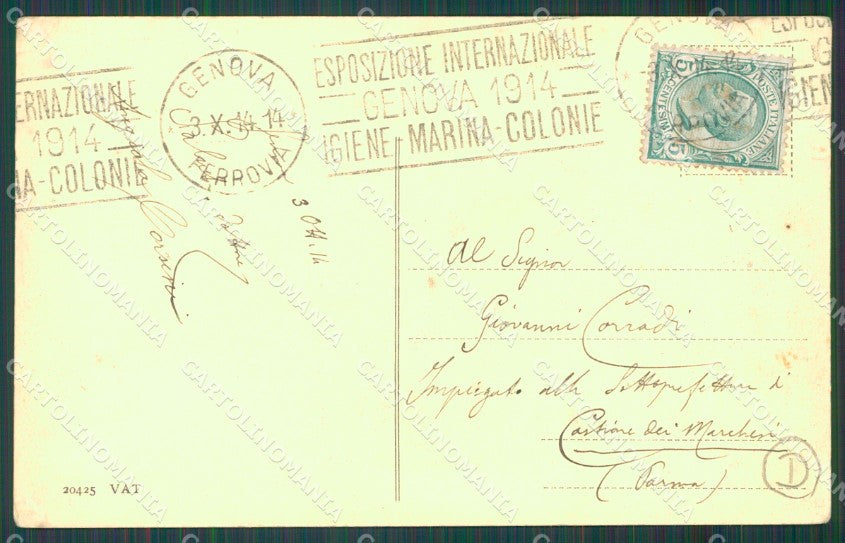 GENOVA
3.X.14 14
FERROVIA
ESPOSIZIONE INTERNAZIONALE
GENOVA 1914
IGIENE MARINA-COLONIE
ERNAZIONALE
1914
NA-COLONIE
GENOVA
POSTE ITALIANE
Corsini
3 Ott. 14
Al Signor
Giovanni Corradi
Impiegato alla Sottoprefettura di
Castione dei Marchesi
(Parma)
D
20425 VAT
CARTOLINOMANIA